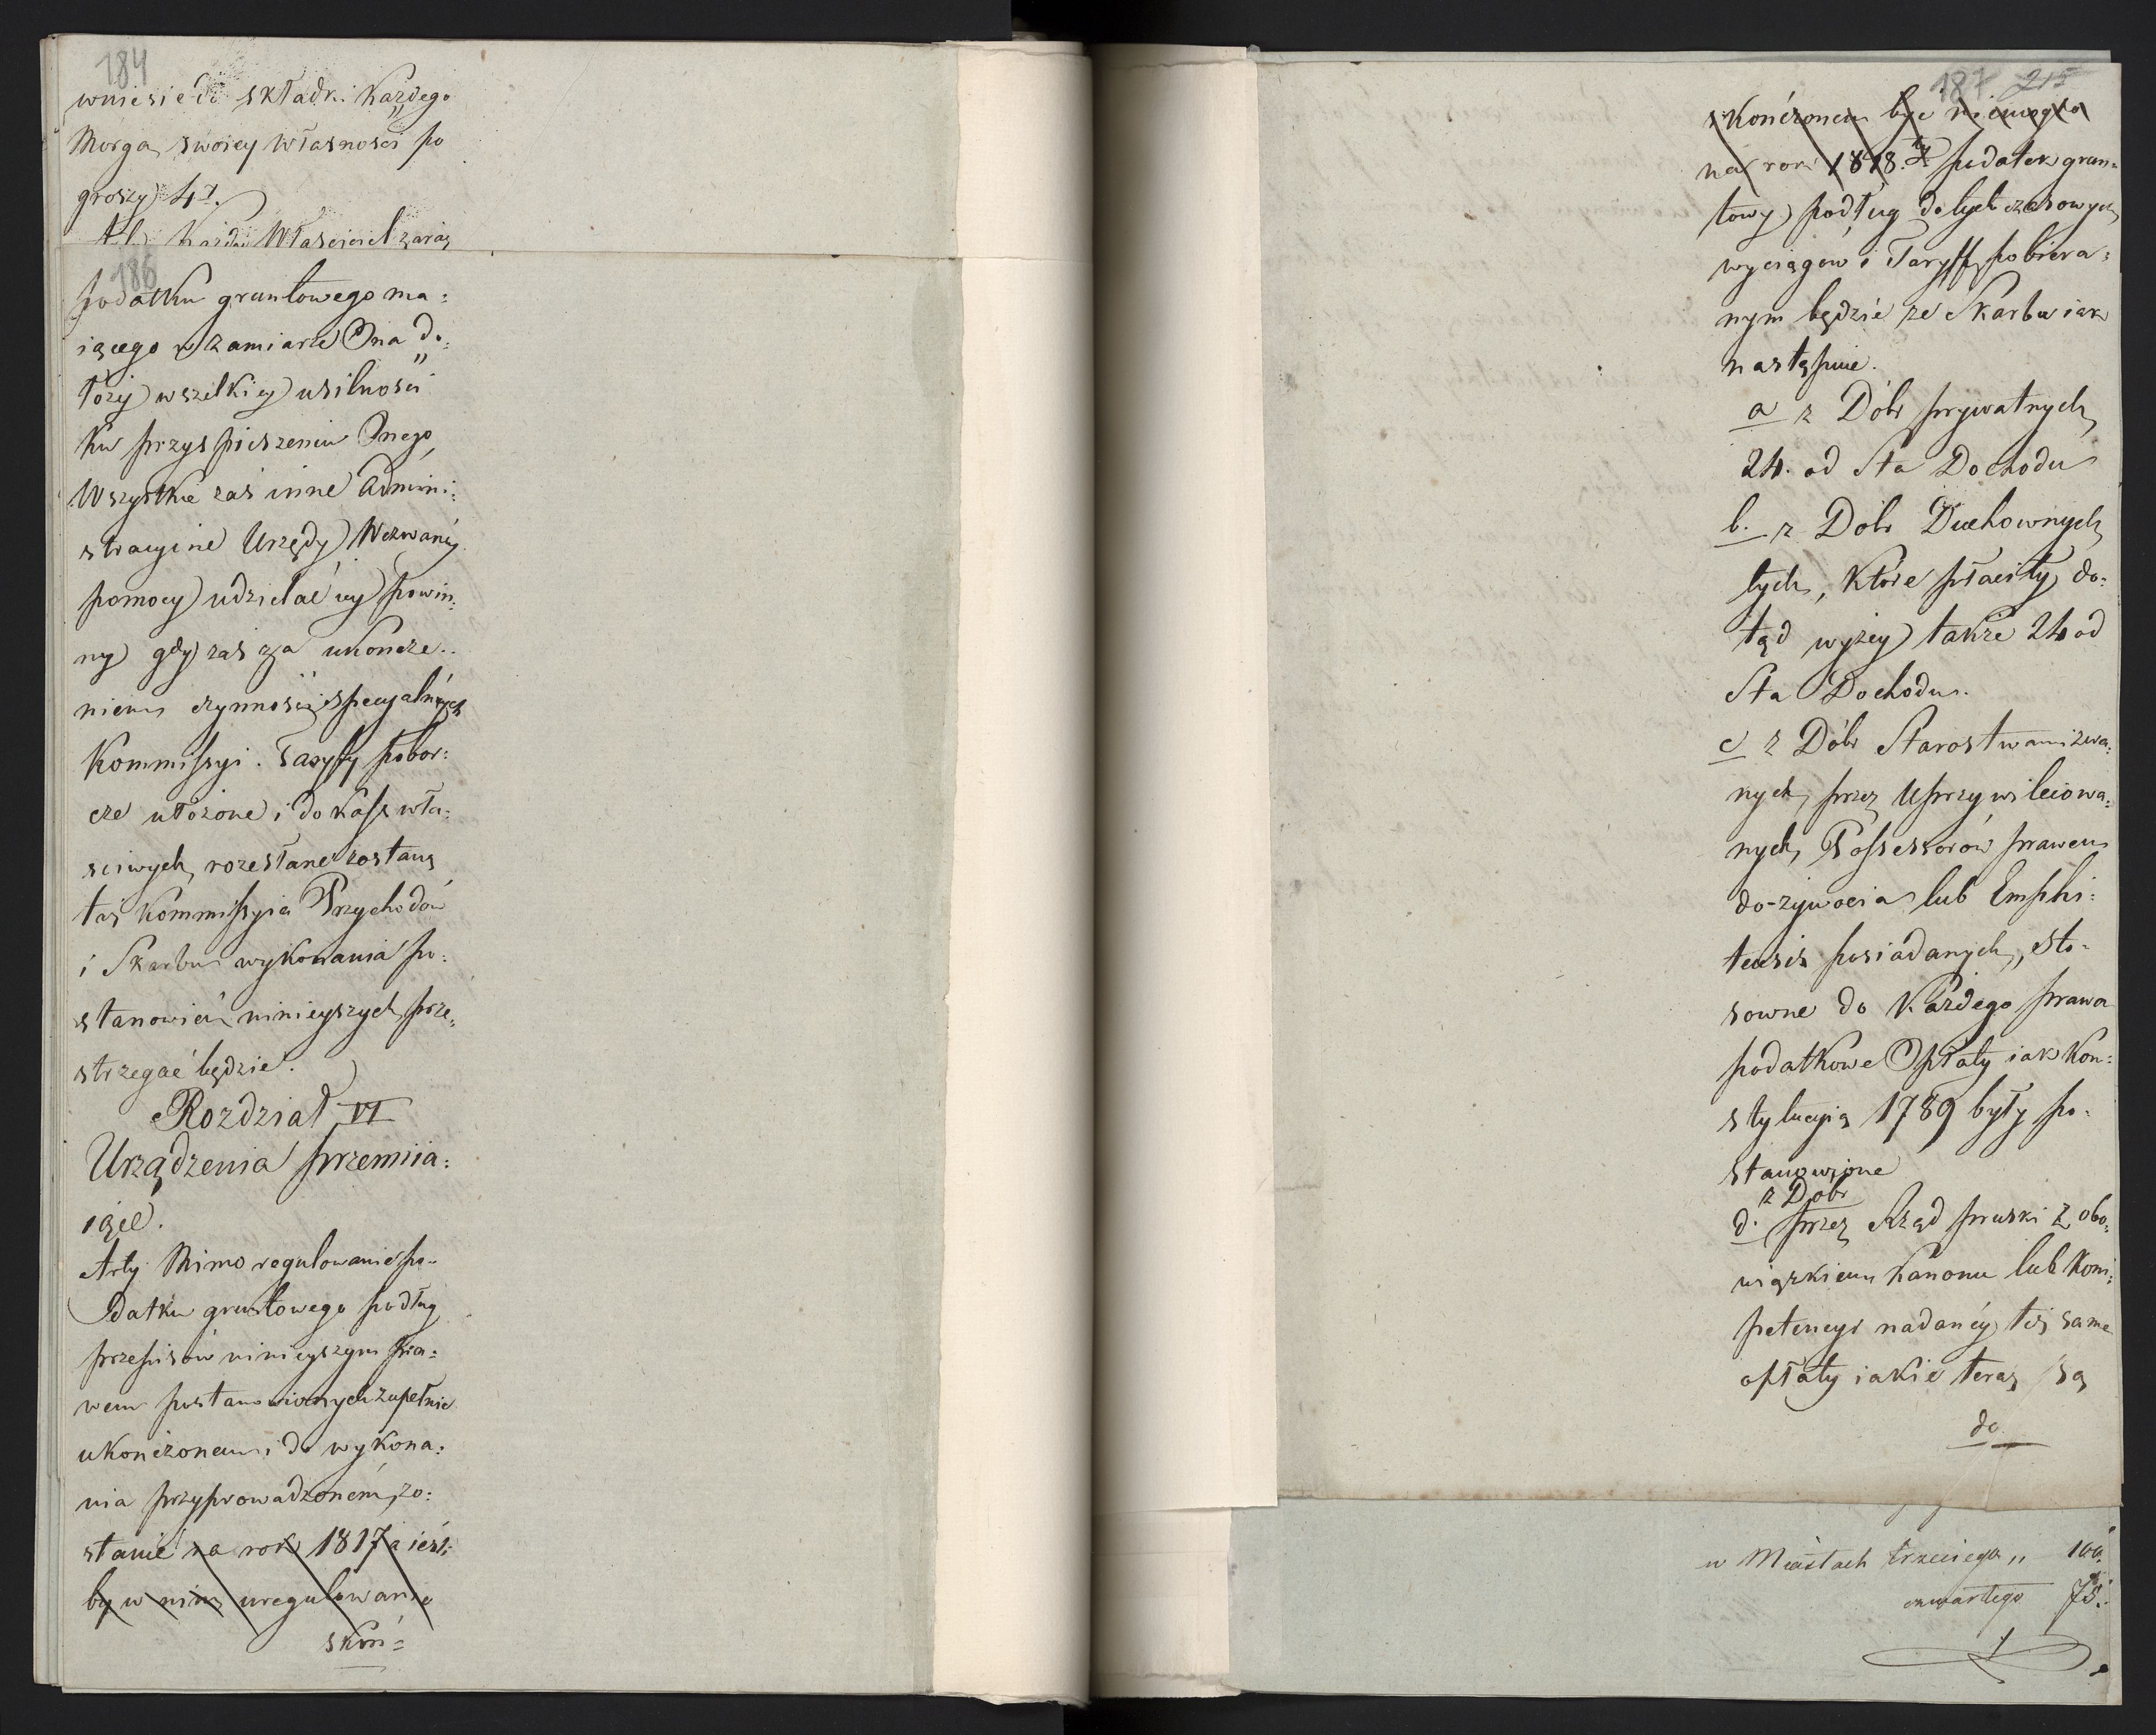 184
wniesie do składki Każdego
Morga swoiey własności po
groszy 4
Każdy Właściciel zaraz
186
podatku gruntowego ma:
iącego w zamiarze Ona do:
łoży wszelkiey usilności
ku przyspieszeniu Onego
Wszystkie zaś inne Admini:
stracyine Urzędy Wezwaney
pomocy udzielać iey powin:
ny gdy zaś za ukończe:
niem czynności specyalnych
Kommissyi Taryffy pobor:
cze ułożone i do Kass wła:
sciwych rozesłane zostaną
taż Kommissyia Przychodów
i Skarbu wykonania po:
stanowień ninieyszych prze:
strzegać będzie.
Rozdział VI
Urządzenia przemiia:
iące.
Arty Mimo regulowanie po:
datku gruntowego podług
przepisów ninieyszym pra:
wem postanowionych zupełnie
ukończonem i do wykona:
nia przyprowadzoném, zo:
stanie na rok 1817 a ieśli
by w nim uregulowanie
skoń=
187 215
skończonem być niemogło
na rok 1818. podatek grun=
towy podług dotychczasowych
wyciągów i Taryff pobiera:
nym będzie ze Skarbu iak
następuie.
a z Dóbr prywatnych
24. od Sta Dochodu
b. z Dobr Duchownych
tych, które płaciły do:
tąd wyżey także 24 od
Sta Dochodu.
c z Dóbr Starostwami zwa:
nych, przez Uprzywileiowa:
nych, Possessorów prawem
do-żywocia lub Emphi:
teusis posiadanych, sto-
sowne do Każdego prawa
podatkowe Opłaty iak Kon:
stytucyią 1789 były po-
stanowione
z Dobr
d. przez Rząd pruski z obo:
wiązkiem Kanonu lub Kom:
petencyi nadaney też same
opłaty iakie teraz są
do
w Miastach trzeciego „ 100.
czwartego 75.